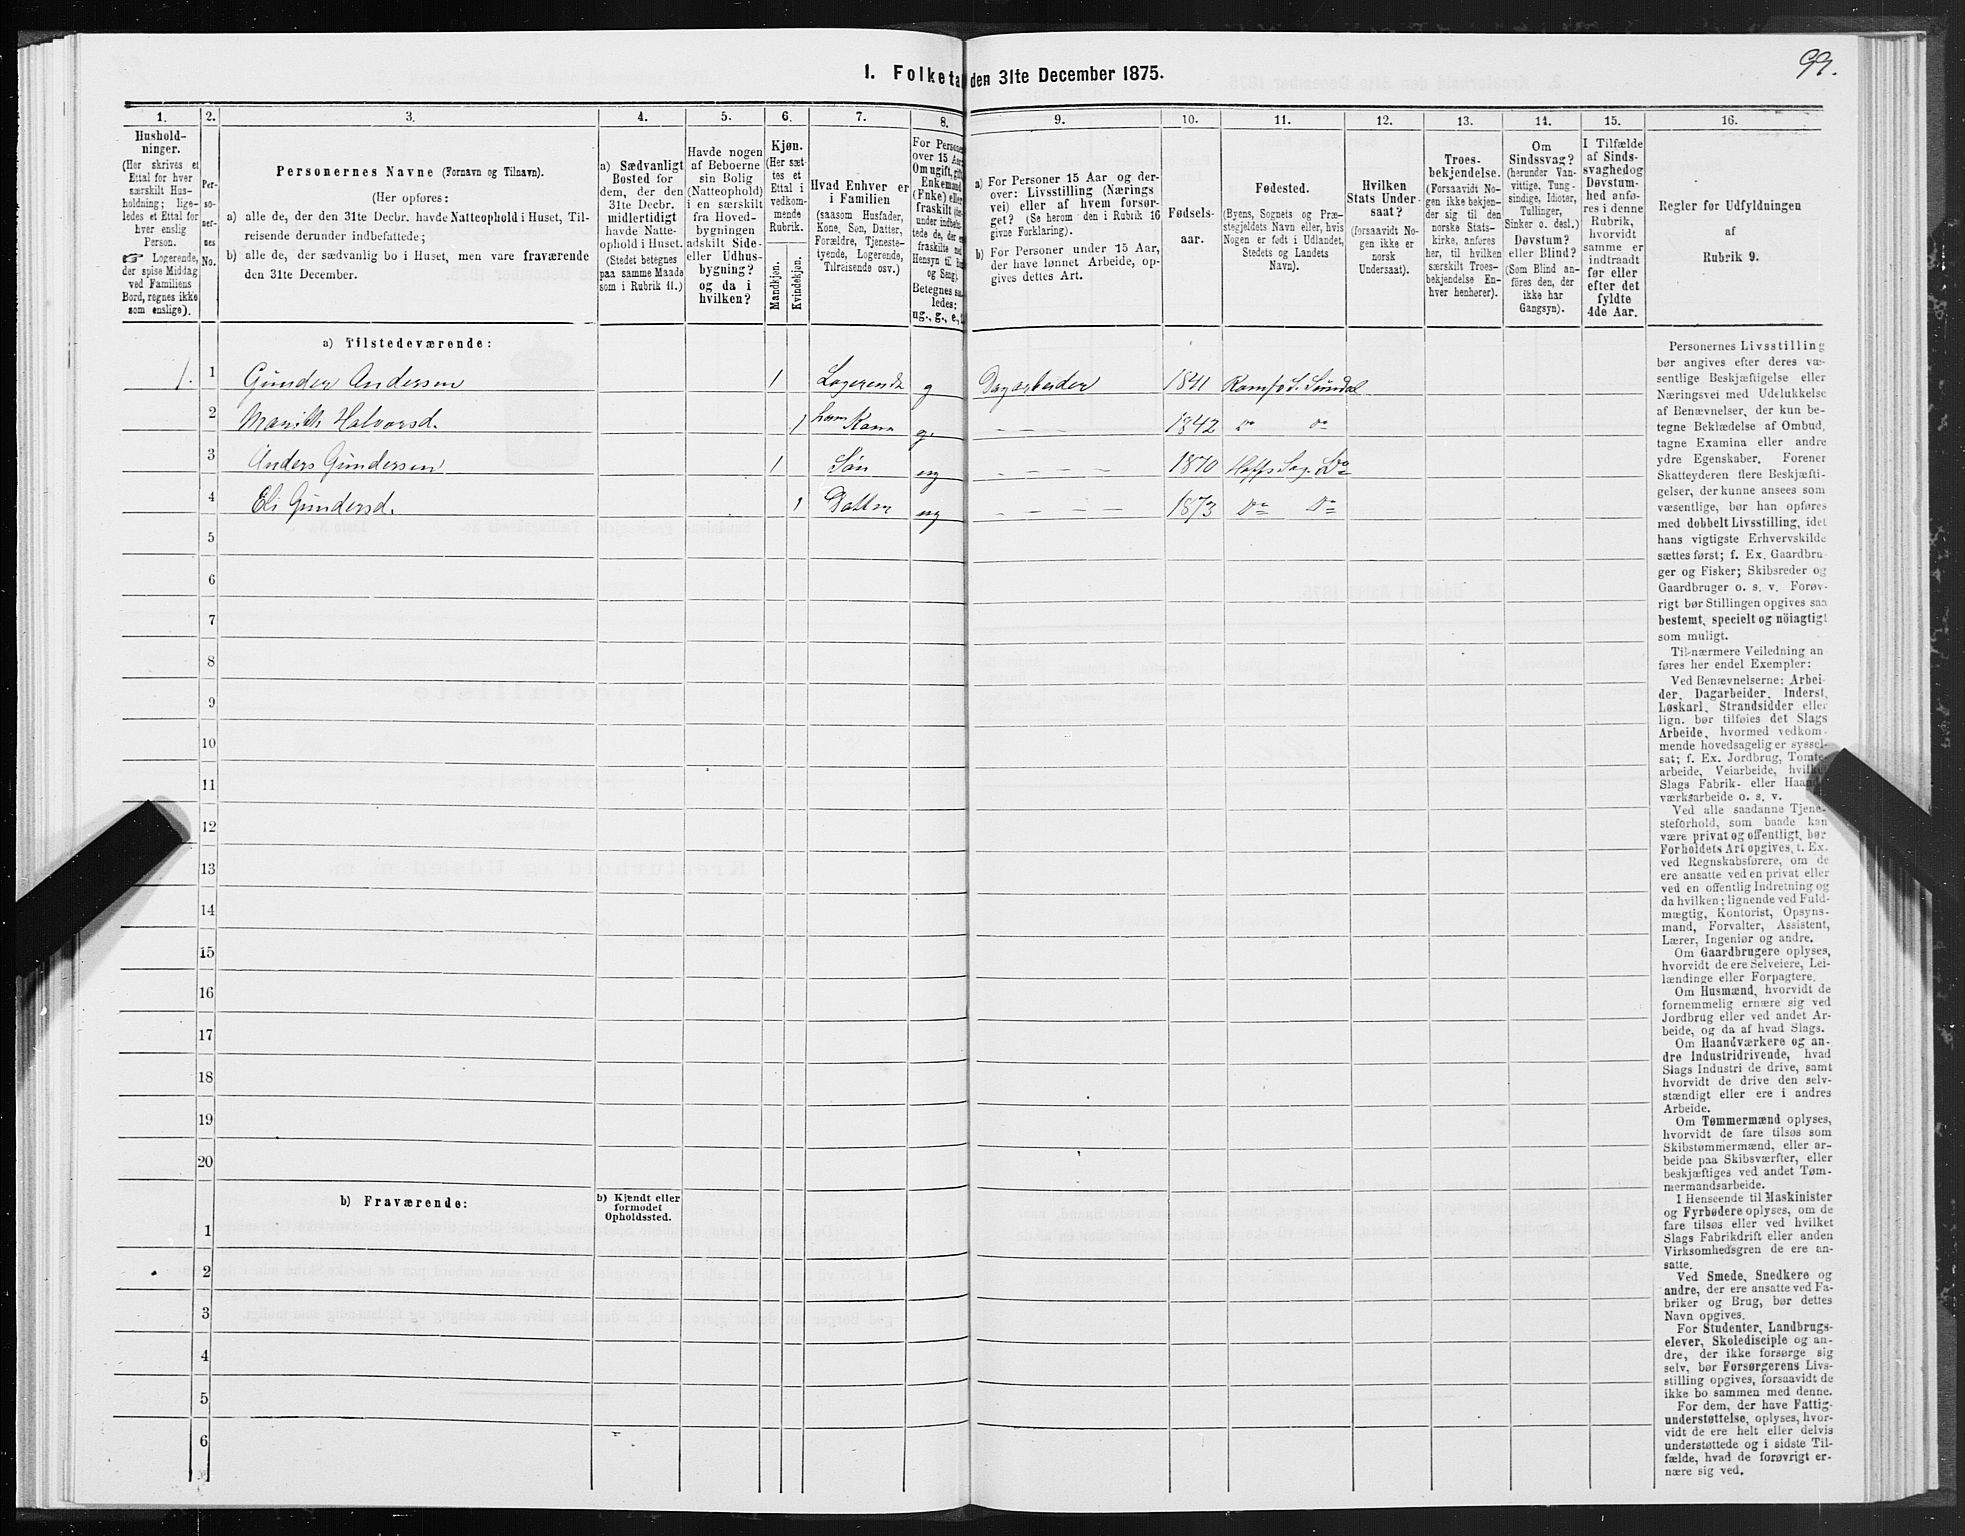 99.
I. Folketal den 31te December 1875.
1. 2. 3. 4. 5. 6. 7. 8. 9. 10. 11. 12. 13. 14. 15. 16.
Hushold-
ninger.
(Her skrives et
Ettal for hver
særskilt Hus-
holdning; lige-
ledes et Ettal for
hver enslig
Person.
☞ Logerende,
der spise Middag
ved Familiens
Bord, regnes ikke
som enslige).
Per-
so-
ner-
nes
No.
Personernes Navne (Fornavn og Tilnavn).
(Her opføres:
a) alle de, der den 31te Decbr. havde Natteophold i Huset, Til-
reisende derunder indbefattede;
b) alle de, der sædvanlig bo i Huset, men vare fraværende
den 31te December.
a) Sædvanligt
Bosted for
dem, der den
31te Decbr.
midlertidigt
havde Natte-
ophold i Huset.
(Stedet betegnes
paa samme Maade
som i Rubrik 11.)
Havde nogen
af Beboerne
sin Bolig
(Natteophold)
i en særskilt
fra Hoved-
bygningen
adskilt Side-
eller Udhus-
bygning?
og da i
hvilken?
Kjøn.
(Her sæt-
tes et
Ettal i
vedkom-
mende
Rubrik.
Mandkjøn.
Kvindekjøn.
Hvad Enhver er
i Familien
(saasom Husfader,
Kone, Søn, Datter,
Forældre, Tjeneste-
tyende, Logerende,
Tilreisende osv.)
For Persone
over 15 Aar
Om ugift, gift
Enkemand
(Enke) eller
fraskilt
Betegnes
ledes:
ug., g., e.,
a) For Personer 15 Aar og der-
over: Livsstilling (Nærings
vei) eller af hvem forsør-
get? (Se herom den i Rubrik 16
givne Forklaring).
b) For Personer under 15 Aar,
der have lønnet Arbeide, op-
gives dettes Art.
Fødsels-
aar.
Fødested.
(Byens, Sognets og Præ-
stegjeldets Navn eller, hvis
Nogen er født i Udlandet,
Stedets og Landets
Navn).
Hvilken
Stats Under-
saat?
(forsaavidt No-
gen ikke er
norsk
Undersaat).
Troes-
bekjendelse.
(Forsaavidt No-
gen ikke bekjen-
der sig til den
norske Stats-
kirke, anføres
her, til hvilken
særskilt Troes-
bekjendelse En-
hver henhører).
Om
Sindssvag?
(herunder Van-
vittige, Tung-
sindige, Idioter,
Tullinger,
Sinker o. desl.)
Døvstum?
eller Blind?
(Som Blind an-
føres den, der
ikke har
Gangsyn).
I Tilfælde
af Sinds-
svaghedog
Døvstum-
hed anfø-
res i denne
Rubrik,
hvorvidt
samme er
indtraadt
før eller
efter det
fyldte
4de Aar.
Regler for Udfyldningen
af
Rubrik 9.
a) Tilstedeværende:
1. 1 Gunder Andersen 1 Logerende g Dagarbeider 1841 Romfo S. Sundal
2 Marith Halvorsd. 1 hans Kone g. – – – – 1842 Do Do
3 Anders Gundersen 1 Søn ug – – – – 1870 Hoffs Sog. Do
4 Eli Gundersd. 1 Datter ug – – – – 1873 Do Do
5
6
7
8
9
10
11
12
13
14
15
16
17
18
19
20
b) Fraværende:
b) Kjendt eller
formodet
Opholdssted.
1
2
3
4
5
6
Personernes Livsstilling
bør angives efter deres væ-
sentlige Beskjæftigelse eller
Næringsvei med Udelukkelse
af Benævnelser, der kun be-
tegne Beklædelse af Ombud,
tagne Examina eller andre
ydre Egenskaber. Forener
Skatteyderen flere Beskjæfti-
gelser, der kunne ansees som
væsentlige, bør han opføres
med dobbelt Livsstilling, idet
hans vigtigste Erhvervskilde
sættes først; f. Ex. Gaardbru-
ger og Fisker; Skibsreder og
Gaardbruger o. s. v. Forøv-
rigt bør Stillingen opgives saa
bestemt, specielt og nöiagtigt
som muligt.
Til nærmere Veiledning an-
føres her endel Exempler:
Ved Benævnelserne: Arbei-
der, Dagarbeider, Inderst,
Løskarl, Strandsidder eller
lign. bør tilføies det Slags
Arbeide, hvormed vedkom-
mende hovedsagelig er syssel-
sat; f. Ex. Jordbrug, Tomte-
arbeide, Veiarbeide, hvilket
Slags Fabrik- eller Haand-
værksarbeide o. s. v.
Ved alle saadanne Tjene-
steforhold, som baade kan
være privat og offentligt, bør
Forholdets Art opgives, t. Ex.
ved Regnskabsførere, om de
ere ansatte ved en privat eller
ved en offentlig Indretning og
da hvilken; lignende ved Fuld-
mægtig, Kontorist, Opsyns-
mand, Forvalter, Assistent,
Lærer, Ingeniør og andre.
Om Gaardbrugere oplyses,
hvorvidt de ere Selveiere, Lei-
lændinge eller Forpagtere.
Om Husmænd, hvorvidt de
fornemmelig ernære sig ved
Jordbrug eller ved andet Ar-
beide, og da af hvad Slags.
Om Haandværkere og an-
dre Industridrivende, hvad
Slags Industri de drive, samt
hvorvidt de drive den selv-
stændigt eller ere i andres
Arbeide.
Om Tømmermænd oplyses,
hvorvidt de fare tilsøs som
Skibstømmermænd, eller ar-
beide paa Skibsværfter, eller
beskjæftiges ved andet Tøm-
mermandsarbeide.
I Henseende til Maskinister
og Fyrbødere oplyses, om de
fare tilsøs eller ved hvilket
Slags Fabrikdrift eller anden
Virksomhedsgren de ere an-
satte.
Ved Smede, Snedkere og
andre, der ere ansatte ved Fa-
briker og Brug, bør dettes
Navn opgives.
For Studenter, Landbrugs-
elever, Skoledisciple og an-
dre, der ikke forsørge sig
selv, bør Forsørgerens Livs-
stilling opgives, forsaavidt de
ikke bo sammen med denne.
For dem, der have Fattig-
understøttelse, oplyses, hvor-
vidt de ere helt eller delvis
understøttede og i sidste Til-
fælde, hvad de forøvrigt er-
nære sig ved.